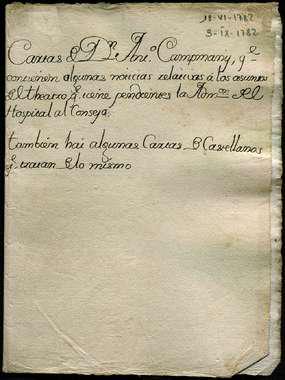 18-VI-1782
3-IX-1782
Cartas de Dn Ant.º Campmany, q.e
contienen algunas noticias relativas á los asuntos
del theatro, q.e tiene pendientes la Adm.on del
Hospital al Consejo;
tambien hai algunas Cartas de Castellanos
q.e tratan de lo mismo